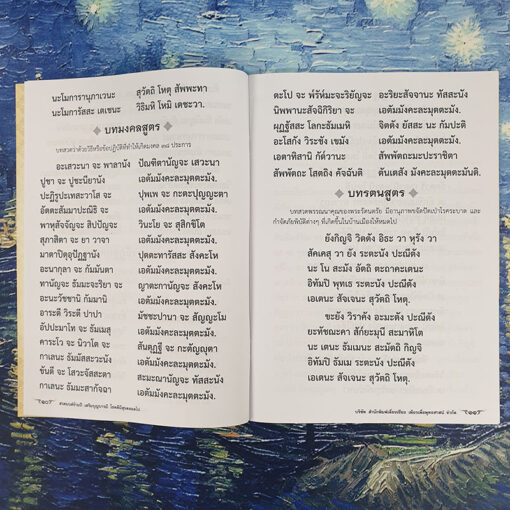 นะโมการานุภาเวนะ สุวัตถิ โหตุ สัพพะทา
นะโมการัสสะ เตเชนะ วิธิมหิ โหมิ เตชะวา.
บทมงคลสูตร
บทสวดว่าด้วยวิธีหรือข้อปฏิบัติที่ทำให้เกิดมงคล ๓๘ ประการ
อะเสวะนา จะ พาลานัง ปัณฑิตานัญจะ เสวะนา
ปูชา จะ ปูชะนียานัง เอตัมมังคะละมุตตะมัง.
ปะฏิรูปะเทสะวาโส จะ ปุพเพ จะ กะตะปุญญะตา
อัตตะสัมมาปะณิธิ จะ เอตัมมังคะละมุตตะมัง.
พาหุสัจจัญจะ สิปปัญจะ วินะโย จะ สุสิกขิโต
สุภาสิตา จะ ยา วาจา เอตัมมังคะละมุตตะมัง.
มาตาปิตุอุปัฏฐานัง ปุตตะทารัสสะ สังคะโห
อะนากุลา จะ กัมมันตา เอตัมมังคะละมุตตะมัง.
ทานัญจะ ธัมมะจะริยา จะ ญาตะกานัญจะ สังคะโห
อะนะวัชชานิ กัมมานิ เอตัมมังคะละมุตตะมัง.
อาระตี วิระตี ปาปา มัชชะปานา จะ สัญญะโม
อัปปะมาโท จะ ธัมเมสุ เอตัมมังคะละมุตตะมัง.
คาระโว จะ นิวาโต จะ สันตุฏฐี จะ กะตัญญุตา
กาเลนะ ธัมมัสสะวะนัง เอตัมมังคะละมุตตะมัง.
ขันตี จะ โสวะจัสสะตา สะมะณานัญจะ ทัสสะนัง
กาเลนะ ธัมมะสากัจฉา เอตัมมังคะละมุตตะมัง.
ตะโป จะ พ๎รัห๎มะจะริยัญจะ อะริยะสัจจานะ ทัสสะนัง
นิพพานะสัจฉิกิริยา จะ เอตัมมังคะละมุตตะมัง.
ผุฏฐัสสะ โลกะธัมเมหิ จิตตัง ยัสสะ นะ กัมปะติ
อะโสกัง วิระชัง เขมัง เอตัมมังคะละมุตตะมัง.
เอตาทิสานิ กัต๎วานะ สัพพัตถะมะปะราชิตา
สัพพัตถะ โสตถิง คัจฉันติ ตันเตสัง มังคะละมุตตะมันติ.
บทรตนสูตร
บทสวดพรรณนาคุณของพระรัตนตรัย มีอานุภาพขจัดปัดเป่าโรคระบาด และ
กำจัดภัยพิบัติต่างๆ ที่เกิดขึ้นในบ้านเมืองให้หมดไป
ยังกิญจิ วิตตัง อิธะ วา หุรัง วา
สัคเคสุ วา ยัง ระตะนัง ปะณีตัง
นะ โน สะมัง อัตถิ ตะถาคะเตนะ
อิทัมปิ พุทเธ ระตะนัง ปะณีตัง
เอเตนะ สัจเจนะ สุวัตถิ โหตุ.
ขะยัง วิราคัง อะมะตัง ปะณีตัง
ยะทัชฌะคา สัก๎ยะมุนี สะมาหิโต
นะ เตนะ ธัมเมนะ สะมัตถิ กิญจิ
อิทัมปิ ธัมเม ระตะนัง ปะณีตัง
เอเตนะ สัจเจนะ สุวัตถิ โหตุ.